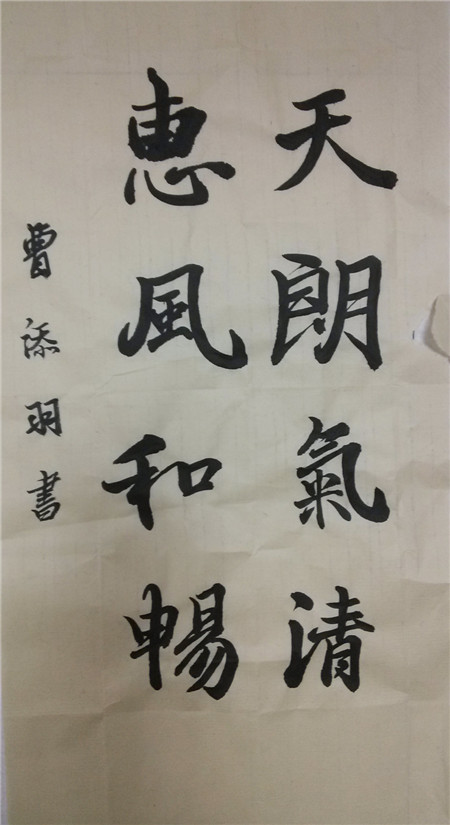 天朗氣清
恵風和暢
曹添羽書